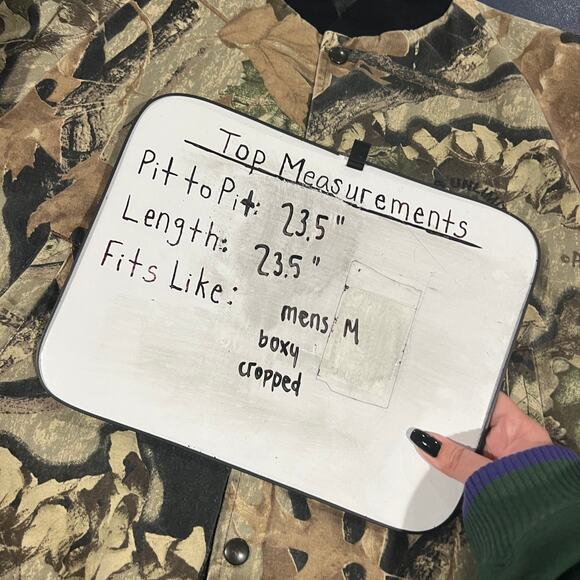 Top Measurements
Pit to Pit: 23.5"
Length: 23.5"
Fits Like:
mens M
boxy
cropped